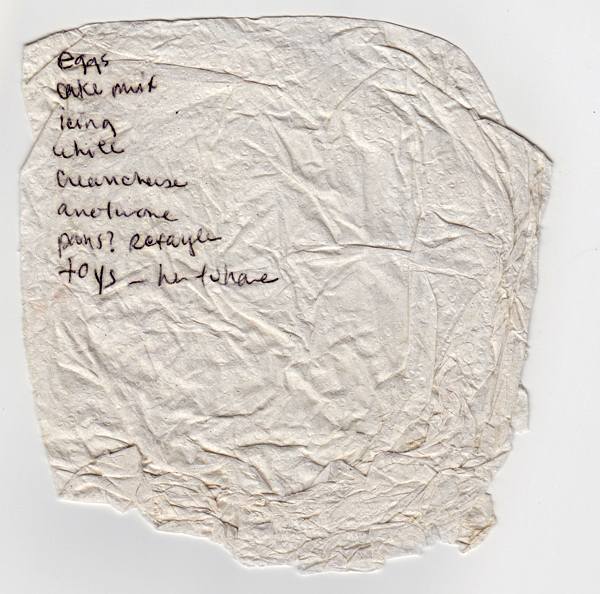 eggs
cake mix
icing
white
creamcheese
another one
pans? Rectangle
toys -